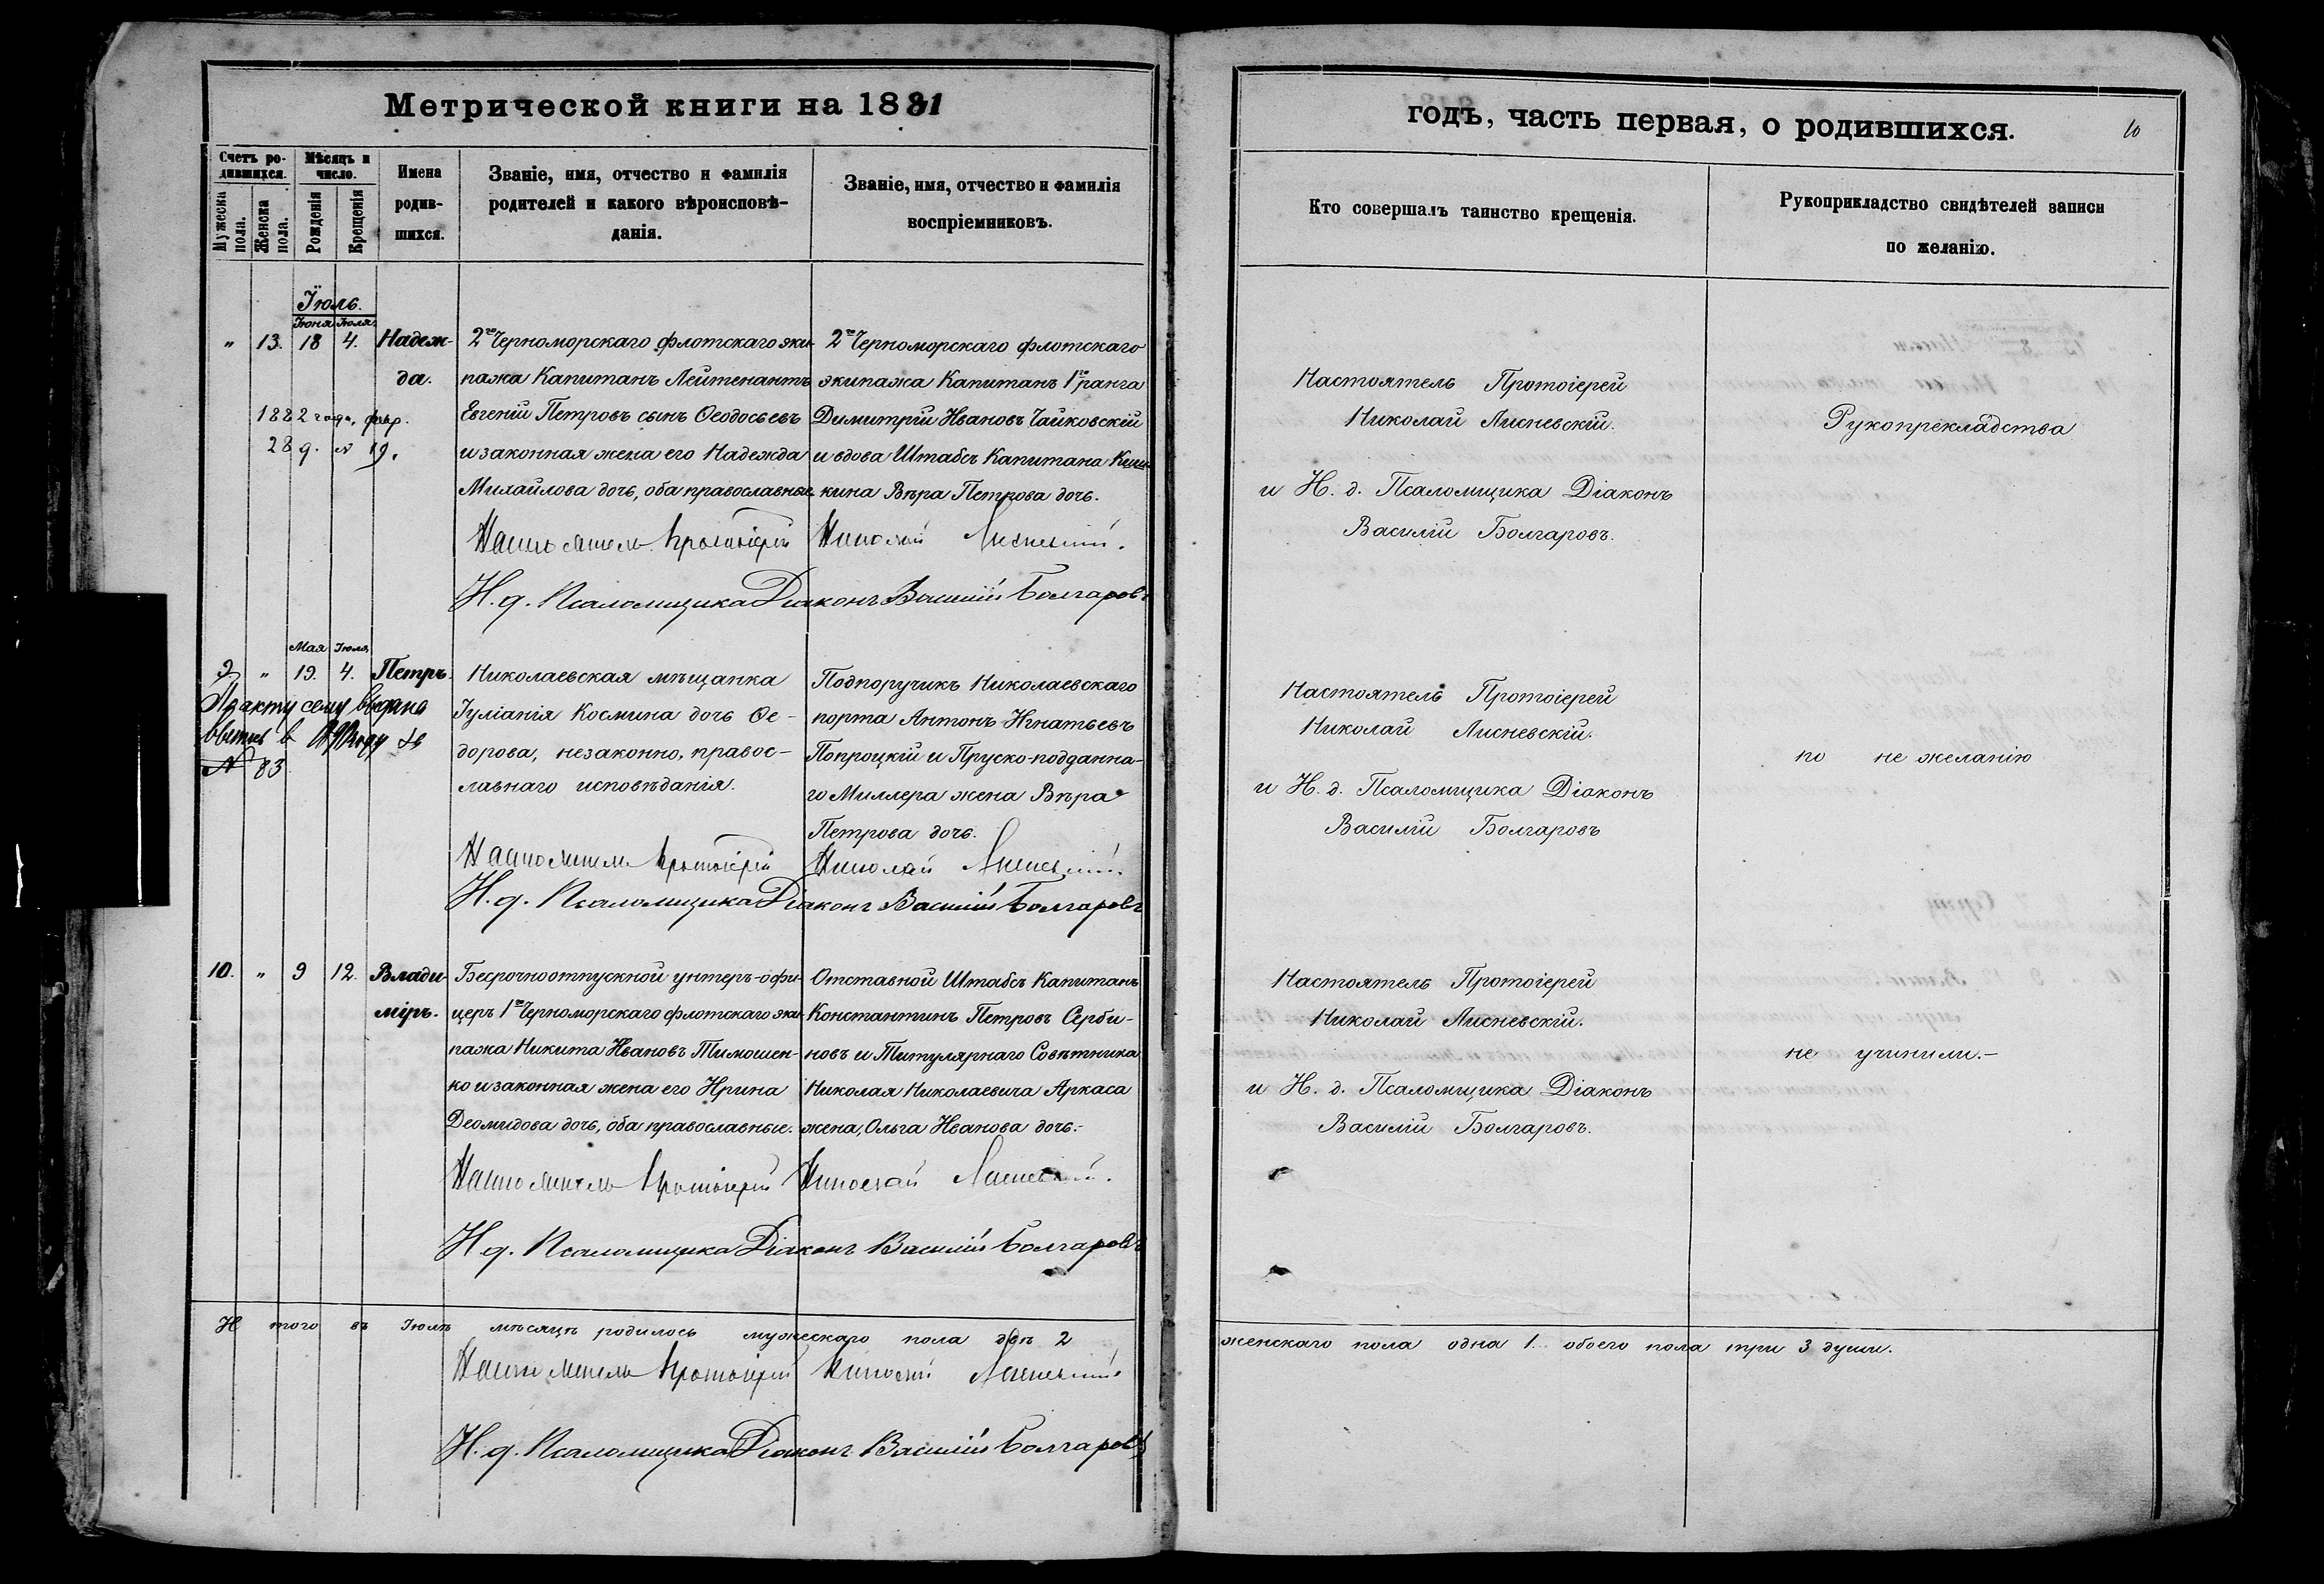 Метрической книги на 1881
годъ, часть первая, о родившихся.
10
Счетъ ро-
дившихся.
Мужеска пола.
Женска пола.
Мѣсяцъ и
число.
Рожденія
Крещенія
Имена
родив-
шихся.
Званіе, имя, отчество и фамилія
родителей и какого вѣроисповѣ-
данія.
Званіе, имя, отчество и фамилія
воспріемниковъ.
Кто совершалъ таинство крещенія.
Рукоприкладство свидѣтелей записи
по желанію.
Іюль.
Іюня Іюля
" 13. 18 4. Надеж-
да.
1882 года, фвр.
28 д. № 19.
2го Черноморскаго флотскаго эки-
пажа Капитанъ Лейтенантъ
Евгеній Петровъ сынъ Ѳеодосьевъ
и законная жена его Надежда
Михайлова дочь, оба православные
2го Черноморскаго флотскаго
экипажа Капитанъ 1го ранга
Димитрій Ивановъ Чайковскій
и вдова Штабсъ Капитана Киш-
кина Вѣра Петрова дочь.
Настоятель Протоіерей Николай Лисневскій.
Н. д. Псаломщика Діаконъ Василій Болгаровъ
Настоятель Протоіерей
Николай Лисневскій.
и Н. д. Псаломщика Діаконъ
Василій Болгаровъ.
Рукопрекладства
Мая Іюля
9 " 19. 4. Петръ.
По акту сему выдана
№ 83
Николаевская мѣщанка
Іуліанія Космина дочь Ѳе-
дорова, незаконно, правос-
лавнаго исповѣданія.
Подпоручикъ Николаевскаго
порта Антонъ Игнатьевъ
Попроцкій и Пруско-подданна-
го Миллера жена Вѣра
Петрова дочь.
Настоятель Протоіерей Николай Лисневскій.
Н. д. Псаломщика Діаконъ Василій Болгаровъ
Настоятель Протоіерей
Николай Лисневскій.
и Н. д. Псаломщика Діаконъ
Василій Болгаровъ
по не желанію
10. " 9 12. Влади-
міръ.
Бесрочноотпускной унтеръ-офи-
церъ 1го Черноморскаго флотскаго эки-
пажа Никита Ивановъ Тимошен-
ко и законная жена его Ирина
Деомидова дочь, оба православные.
Отставной Штабсъ Капитанъ
Константинъ Петровъ Серби-
новъ и Титулярнаго Совѣтника
Николая Николаевича Аркаса
жена, Ольга Иванова дочь.-
Настоятель Протоіерей Николай Лисневскій.
Н. д. Псаломщика Діаконъ Василій Болгаровъ
Настоятель Протоіерей
Николай Лисневскій.
и Н. д. Псаломщика Діаконъ
Василій Болгаровъ.
не учинили.-
И того въ Іюлѣ мѣсяцѣ родилось мужескаго пола двѣ 2
женскаго пола одна 1. обоего пола три 3 души.
Настоятель Протоіерей Николай Лисневскій
Н. д. Псаломщика Діаконъ Василій Болгаровъ